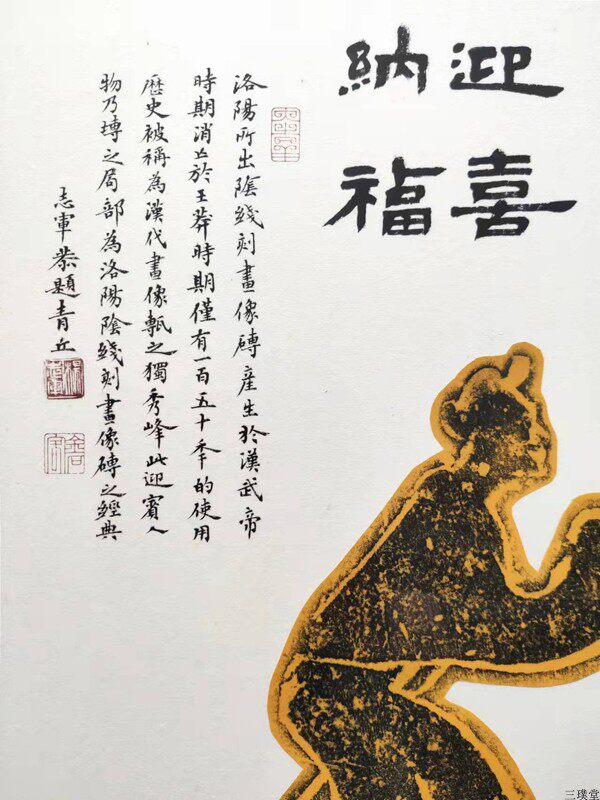 迎喜
納福
洛陽所出陰綫刻畫像磚産生於漢武帝
時期消亡於王莽時期僅有一百五十年的使用
歷史被稱為漢代畫像甎之獨秀峰此迎賓人
物乃塼之局部為洛陽陰綫刻畫像磚之經典
志軍恭題青丘
三璞堂